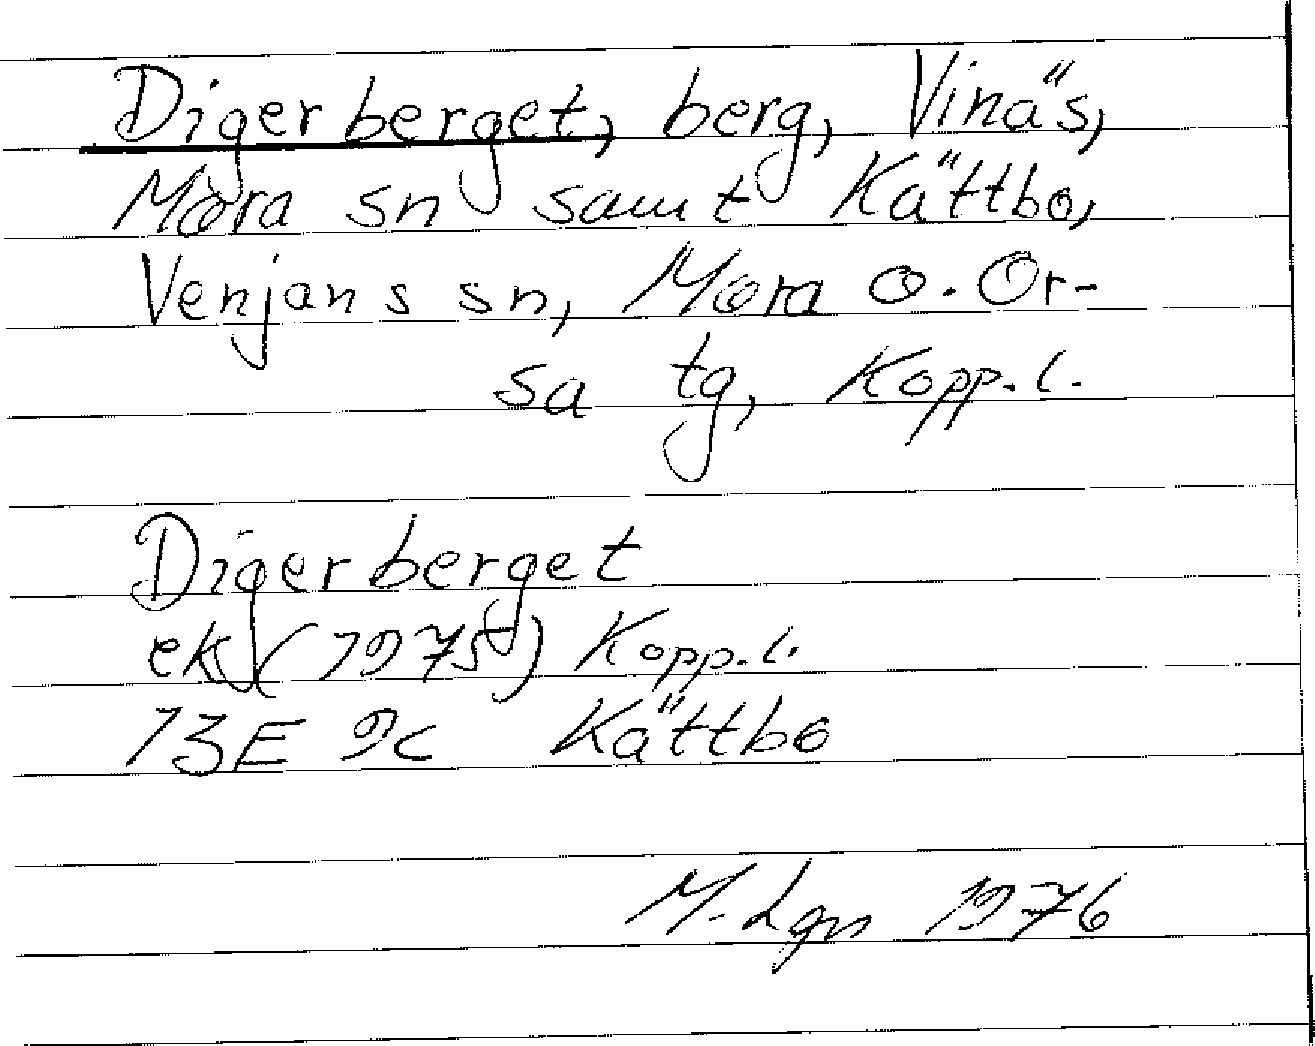 Digerberget, berg, Vinäs,
Mora sn samt Kättbo,
Venjans sn, Mora o. Or-
sa tg, Kopp. l.
Digerberget
ek (1975) Kopp. l.
13E 9c Kättbo
M. Lgn 1976